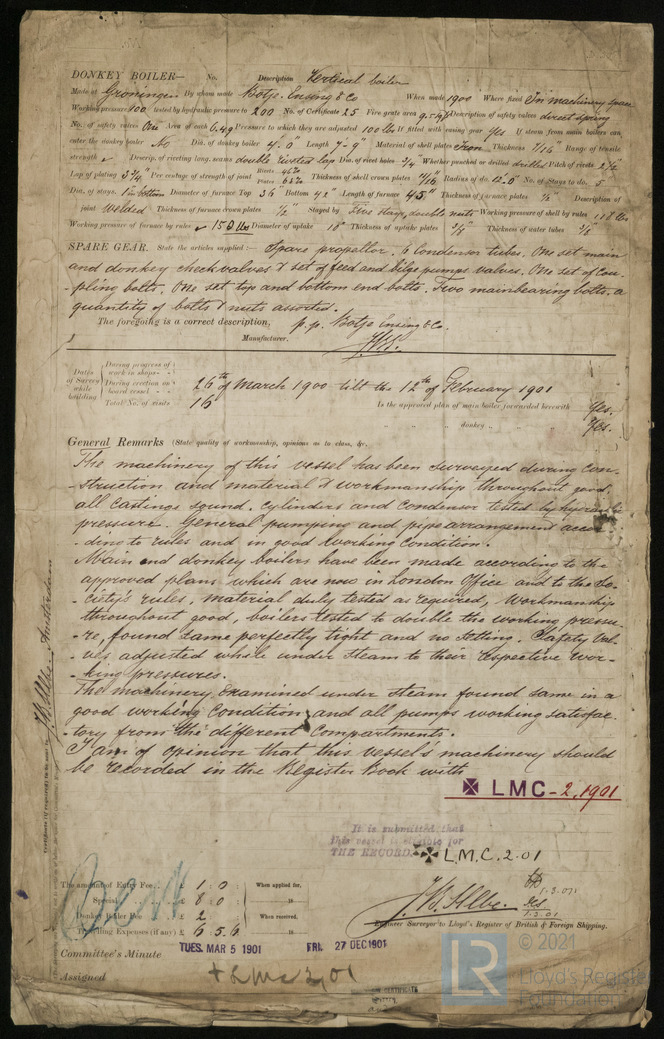 DONKEY BOILER— No. Description Vertical boiler
Made at Groningen By whom made Botje Ensing & Co When made 1900 Where fixed In machinery space
Working pressure 100 tested by hydraulic pressure to 200 No. of Certificate 25 Fire grate area Description of safety valves direct spring
No. of safety valves One Area of each 6.49 Pressure to which they are adjusted 100 lbs If fitted with easing gear Yes If steam from main boilers can
enter the donkey boiler No Dia. of donkey boiler 4'.0" Length 7'-9" Material of shell plates Iron Thickness 7/16" Range of tensile
strength Descrip. of riveting long. seams double riveted lap Dia. of rivet holes 3/4" Whether punched or drilled drilled Pitch of rivets 2 1/2"
Lap of plating 3 3/4" Per centage of strength of joint Rivets Plates Thickness of shell crown plates Radius of do. 12'-0" No. of Stays to do. 5
Dia. of stays. Diameter of furnace Top 36 Bottom 42" Length of furnace 45" Thickness of furnace plates Description of
joint Welded Thickness of furnace crown plates 1/2" Stayed by double nuts Working pressure of shell by rules 118 lbs
Working pressure of furnace by rules 150 lbs Diameter of uptake Thickness of uptake plates Thickness of water tubes
SPARE GEAR. State the articles supplied :— Spare propellor. 6 Condensor tubes. One set main
and donkey check valves & set of feed and bilge pumps valves. One set of Cou-
-pling bolts. One set top and bottom end bolts. Two mainbearing bolts. a
quantity of bolts & nuts assorted.
The foregoing is a correct description,
p.p. Botje Ensing & Co.
Manufacturer.
Dates of Survey while building
During progress of work in shops - -
During erection on board vessel - - -
Total No. of visits
26th of March 1900 till the 12th of February 1901
16
Is the approved plan of main boiler forwarded herewith Yes.
" " " donkey " " " Yes.
General Remarks (State quality of workmanship, opinions as to class, &c.
The machinery of this vessel has been surveyed during con-
-struction and material & workmanship throughout good,
all Castings sound. Cylinders and Condensor tested by hydraulic
pressure. General pumping and pipe arrangement accor-
-ding to rules and in good working Condition.
Main and donkey boilers have been made according to the
approved plans which are now in London Office and to the So-
-ciety's rules, material duly tested as required, workmanship
throughout good, boilers tested to double the working pressu-
-re, found same perfectly tight and no setting. Safety Val-
-ves adjusted while under steam to their respective wor-
-king pressures.
The machinery examined under steam found same in a
good working Condition, and all pumps working satisfac-
-tory from the different Compartments.
I am of opinion that this vessel's machinery should
be recorded in the Register Book with
LMC - 2,1901
It is submitted that
this vessel is eligible for
THE RECORD. L.M.C. 2.01
The amount of Entry Fee. £ 1 : 0 : When applied for,
Special £ 8 : 0 :
Donkey Boiler Fee £ 2 : When received.
Travelling Expenses (if any) £ 6 : 5 . 6
Engineer Surveyor to Lloyd's Register of British & Foreign Shipping.
Committee's Minute TUES. MAR 5 1901 FRI. 27 DEC 1901
Assigned + LMC 2,01
LR
© 2021
Lloyd's Register
Foundation